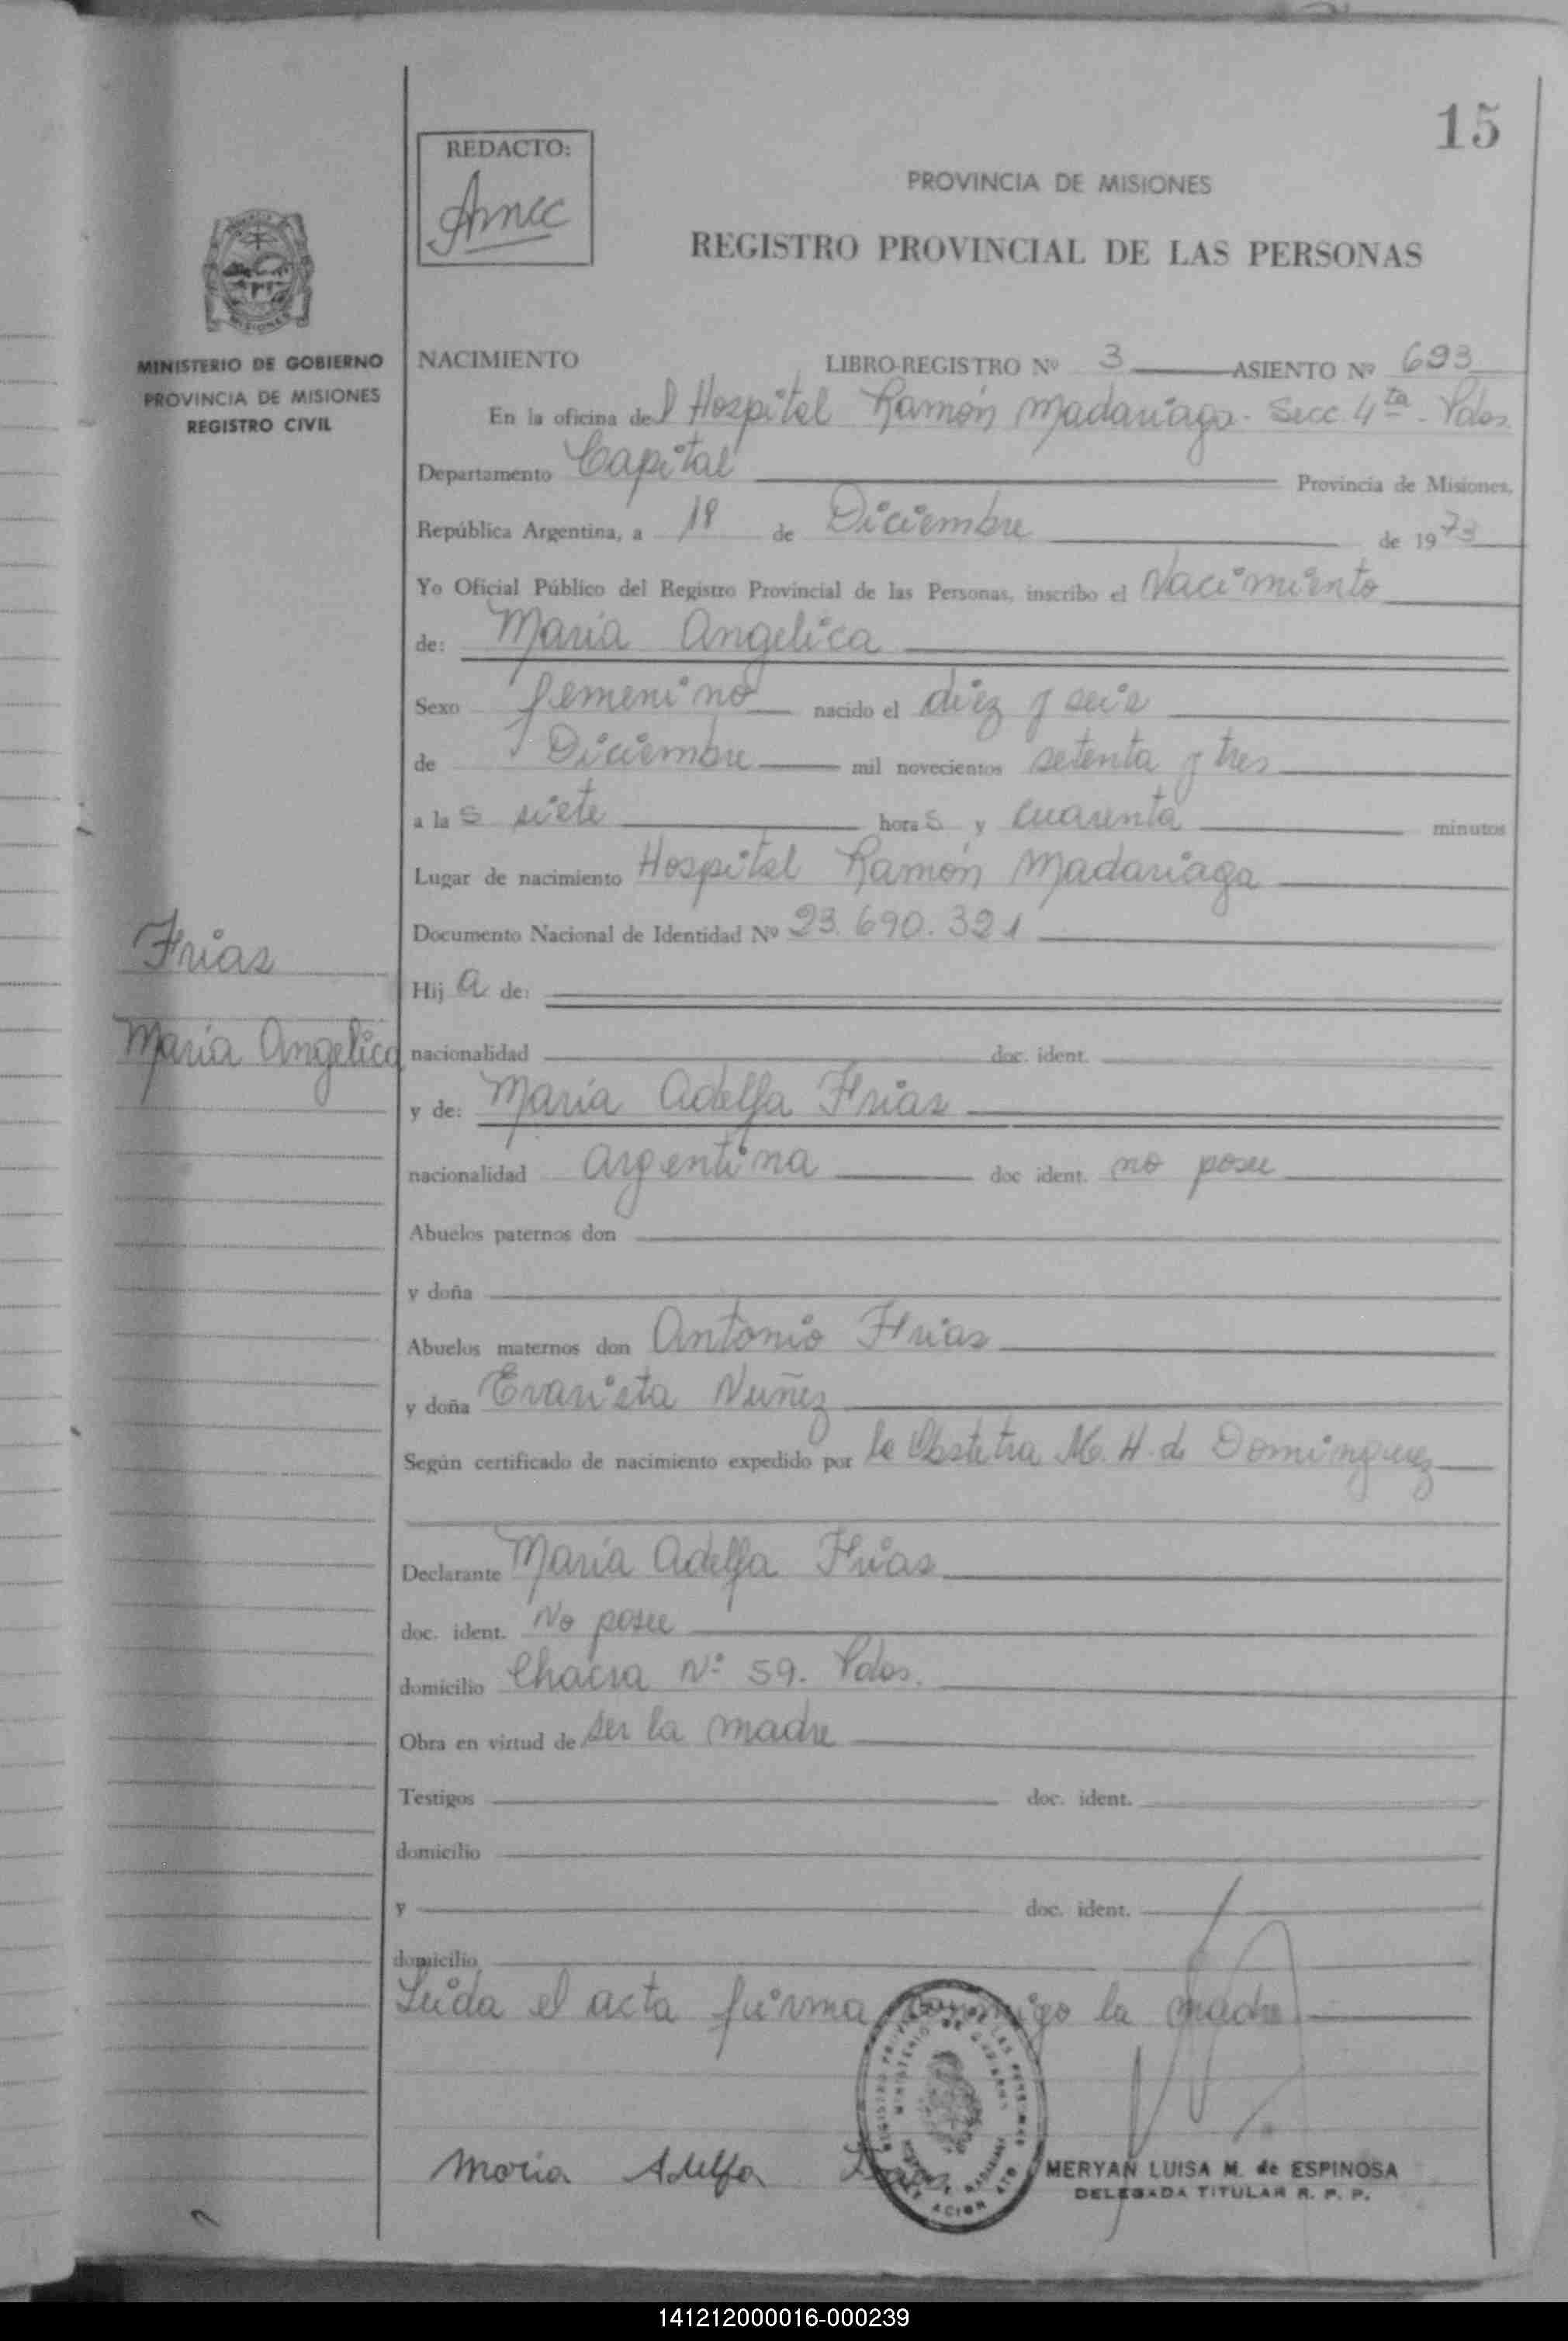 15
REDACTO:
PROVINCIA DE MISIONES
REGISTRO PROVINCIAL DE LAS PERSONAS
MINISTERIO DE GOBIERNO
PROVINCIA DE MISIONES
REGISTRO CIVIL
NACIMIENTO LIBRO-REGISTRO Nº 3 ASIENTO Nº 693
En la oficina del Hospital Ramón Madariaga - Secc. 4ta - Pdas.
Departamento Capital Provincia de Misiones,
República Argentina, a 18 de Diciembre de 1973
Yo Oficial Público del Registro Provincial de las Personas, inscribo el Nacimiento
de: María Angelica
Sexo femenino nacido el diez y seis
de Diciembre mil novecientos setenta y tres
a las siete horas y cuarenta minutos
Lugar de nacimiento Hospital Ramón Madariaga
Documento Nacional de Identidad Nº 23.690.321
Frias
Hija de:
María Angelica
nacionalidad doc. ident.
y de: María Adelfa Frias
nacionalidad argentina doc ident. no posee
Abuelos paternos don
y doña
Abuelos maternos don Antonio Frias
y doña Evarista Nuñez
Según certificado de nacimiento expedido por la Obstetra M. H. de Dominguez
Declarante María Adelfa Frias
doc. ident. No posee
domicilio Chacra Nº 59. Pdas.
Obra en virtud de ser la madre
Testigos doc. ident.
domicilio
y doc. ident.
domicilio
Leida el acta firma conmigo la madre
Maria Adelfa
MERYAN LUISA M. de ESPINOSA
DELEGADA TITULAR R. P. P.
141212000016-000239